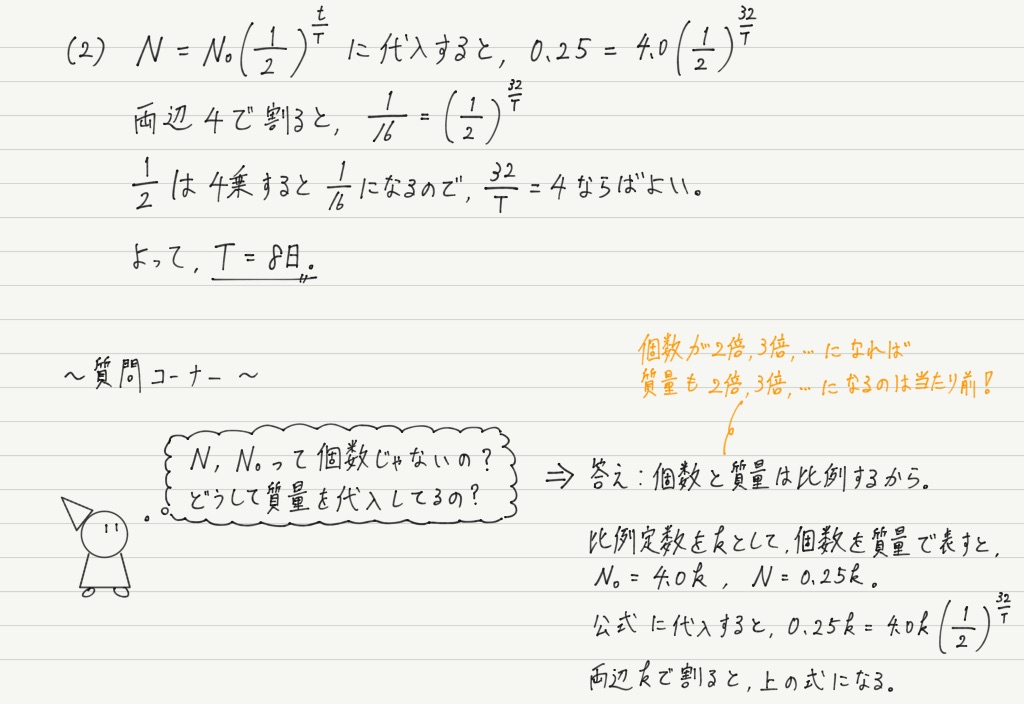 (2) N = N₀(1/2)^(t/T) に代入すると, 0.25 = 4.0(1/2)^(32/T)
両辺 4で割ると, 1/16 = (1/2)^(32/T)
1/2 は 4乗すると 1/16 になるので, 32/T = 4 ならばよい。
よって, T = 8日.
～質問コーナー～
個数が2倍, 3倍, … になれば
質量も 2倍, 3倍, … になるのは当たり前!
N, N₀って個数じゃないの?
どうして質量を代入してるの?
⇒ 答え : 個数と質量は比例するから。
比例定数をkとして, 個数を質量で表すと,
N₀ = 4.0k , N = 0.25k .
公式に代入すると, 0.25k = 4.0k(1/2)^(32/T)
両辺kで割ると, 上の式になる。